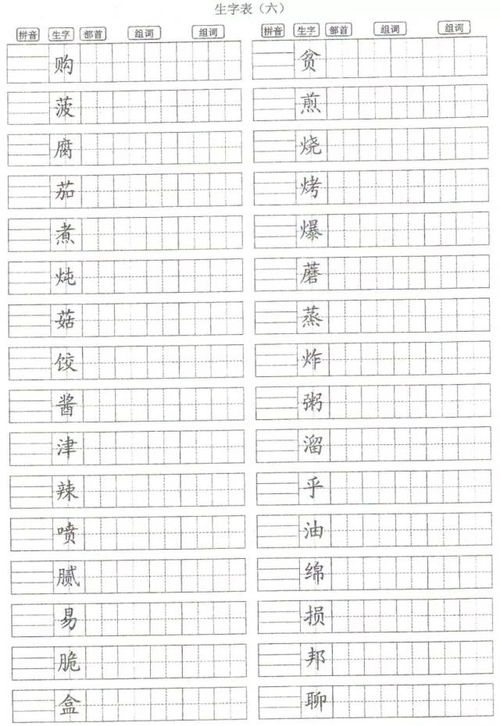 生字表（六）
拼音 生字 部首 组词 组词 拼音 生字 部首 组词 组词
购 贫
菠 煎
腐 烧
茄 烤
煮 爆
炖 蘑
菇 蒸
饺 炸
酱 粥
津 溜
辣 乎
喷 油
腻 绵
易 损
脆 邦
盒 聊